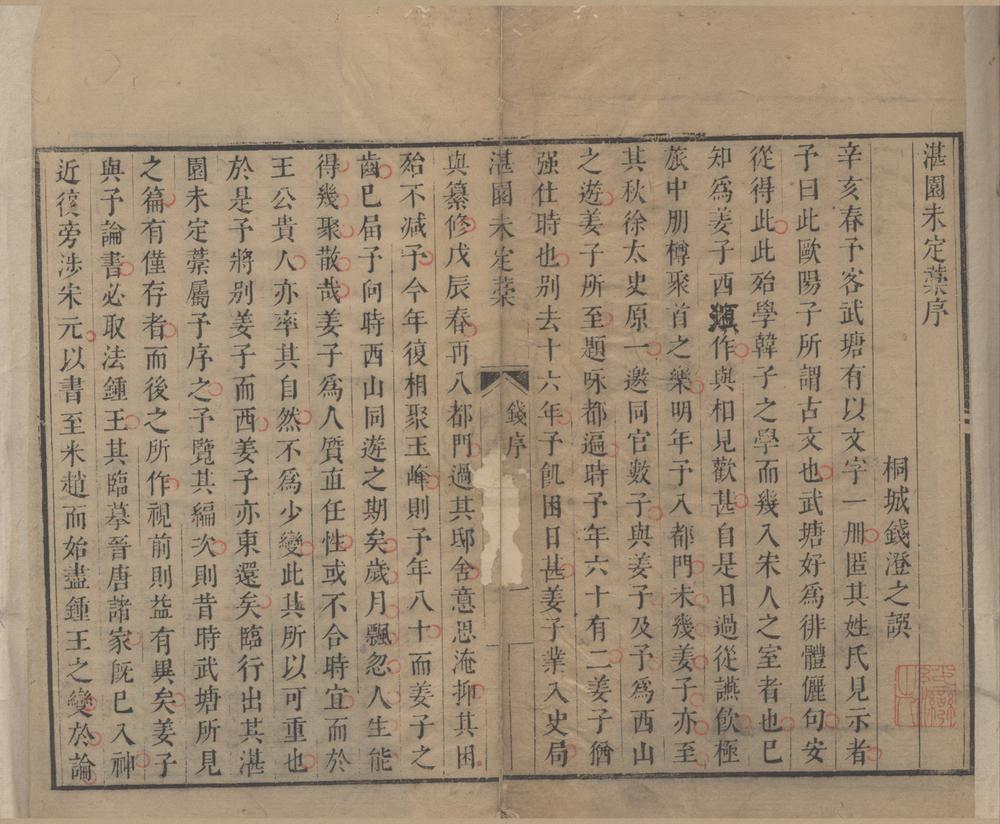 湛園未定藁序
桐城錢澄之譔
辛亥春予客武塘有以文字一册匿其姓氏見示者
予曰此歐陽子所謂古文也武塘好為徘體儷句安
從得此此殆學韓子之學而幾入宋人之室者也已
知為姜子西溟作與相見歡甚自是日過從讌飲極
旅中朋樽聚首之樂明年予入都門未幾姜子亦至
其秋徐太史原一邀同官數子與姜子及予為西山
之遊姜子所至題咏都遍時予年六十有二姜子猶
强仕時也别去十六年子飢困日甚姜子業入史局
湛園未定藁
錢序
一
與纂修戊辰春再入都門過其邸舍意思淹抑其困
殆不减予今年復相聚玉峰則予年八十而姜子之
齒已届予向時西山同遊之期矣歲月飄忽人生能
得幾聚散哉姜子為人質直任性或不合時宜而於
王公貴人亦率其自然不為少變此其所以可重也
於是予將别姜子而西姜子亦東還矣臨行出其湛
園未定藁屬予序之予覽其編次則昔時武塘所見
之篇有僅存者而後之所作視前則益有異矣姜子
與予論書必取法鍾王其臨摹晉唐諸家旣已入神
近復旁涉宋元以書至米趙而始盡鍾王之變於論